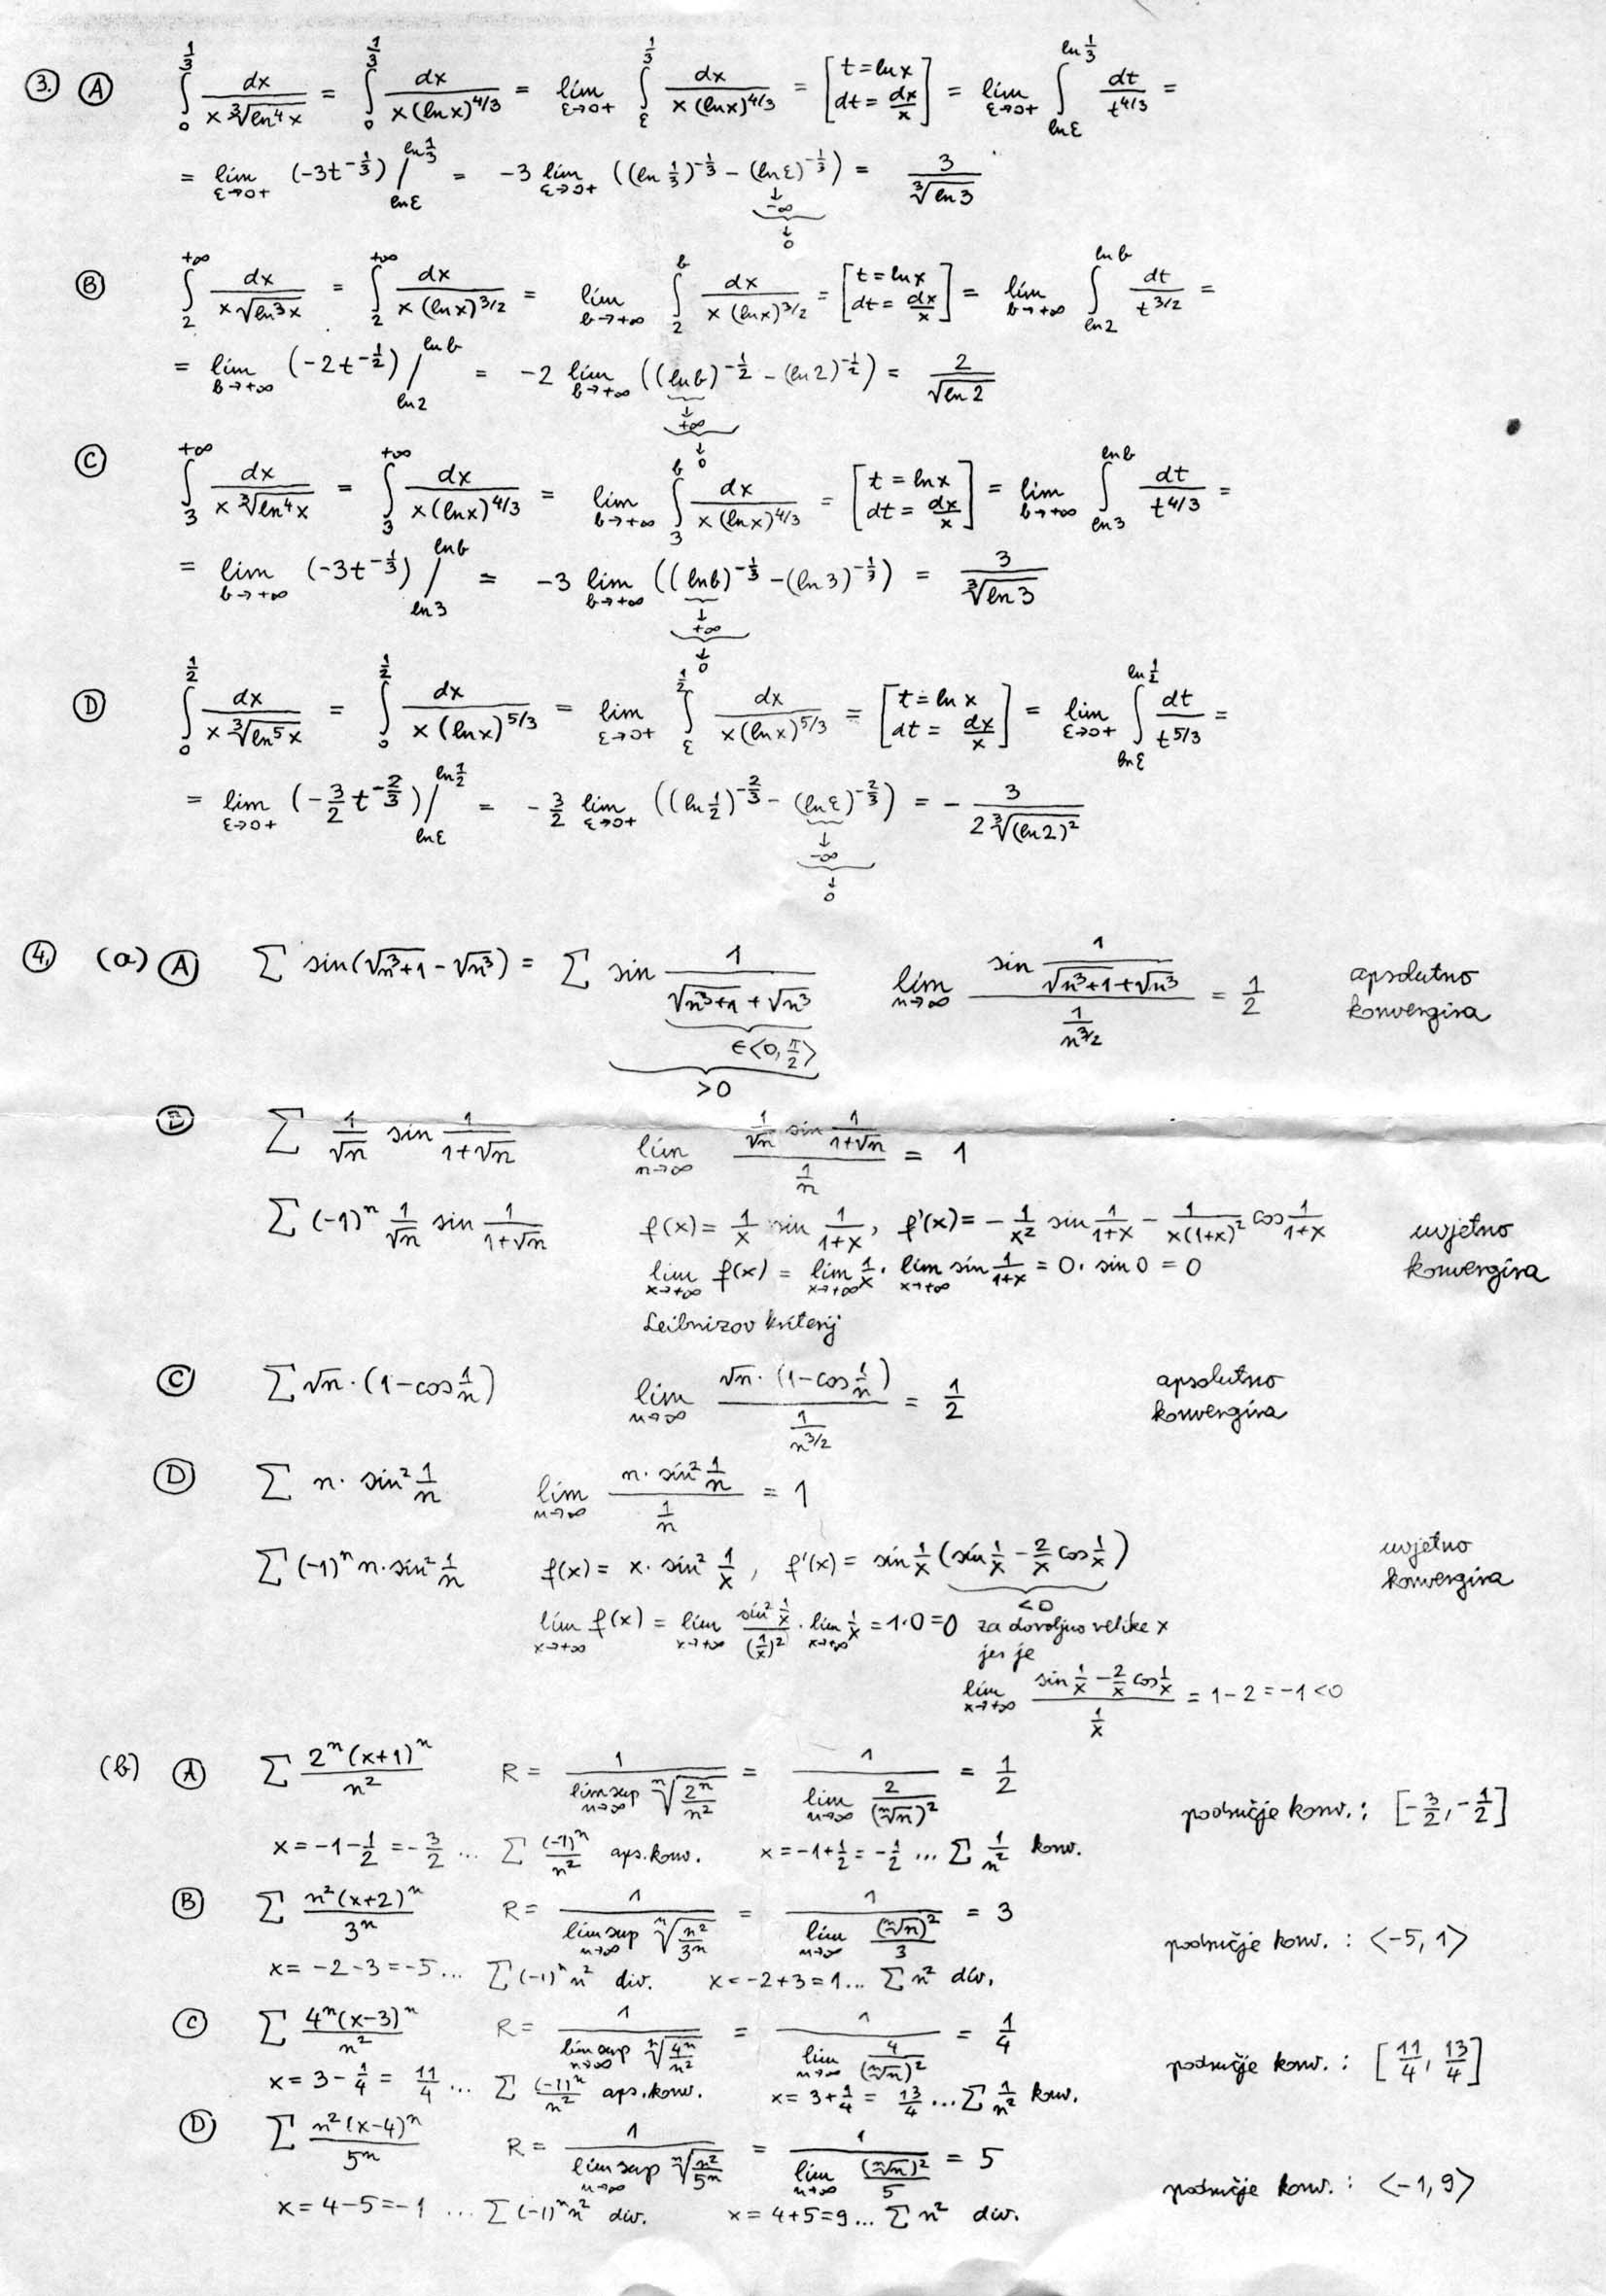 3. A ∫_0^{1/3} dx/(x ∛(ln⁴x)) = ∫_0^{1/3} dx/(x(ln x)^{4/3}) = lim_{ε→0+} ∫_ε^{1/3} dx/(x(ln x)^{4/3}) = [t = ln x, dt = dx/x] = lim_{ε→0+} ∫_{ln ε}^{ln 1/3} dt/t^{4/3} =
= lim_{ε→0+} (-3t^{-1/3}) |_{ln ε}^{ln 1/3} = -3 lim_{ε→0+} ((ln 1/3)^{-1/3} - (ln ε)^{-1/3}) = 3/∛(ln 3)
↓ -∞
↓ 0
B ∫_2^{+∞} dx/(x √(ln³x)) = ∫_2^{+∞} dx/(x(ln x)^{3/2}) = lim_{b→+∞} ∫_2^b dx/(x(ln x)^{3/2}) = [t = ln x, dt = dx/x] = lim_{b→+∞} ∫_{ln 2}^{ln b} dt/t^{3/2} =
= lim_{b→+∞} (-2t^{-1/2}) |_{ln 2}^{ln b} = -2 lim_{b→+∞} ((ln b)^{-1/2} - (ln 2)^{-1/2}) = 2/√(ln 2)
↓ +∞
↓ 0
C ∫_3^{+∞} dx/(x ∛(ln⁴x)) = ∫_3^{+∞} dx/(x(ln x)^{4/3}) = lim_{b→+∞} ∫_3^b dx/(x(ln x)^{4/3}) = [t = ln x, dt = dx/x] = lim_{b→+∞} ∫_{ln 3}^{ln b} dt/t^{4/3} =
= lim_{b→+∞} (-3t^{-1/3}) |_{ln 3}^{ln b} = -3 lim_{b→+∞} ((ln b)^{-1/3} - (ln 3)^{-1/3}) = 3/∛(ln 3)
↓ +∞
↓ 0
D ∫_0^{1/2} dx/(x ∛(ln⁵x)) = ∫_0^{1/2} dx/(x(ln x)^{5/3}) = lim_{ε→0+} ∫_ε^{1/2} dx/(x(ln x)^{5/3}) = [t = ln x, dt = dx/x] = lim_{ε→0+} ∫_{ln ε}^{ln 1/2} dt/t^{5/3} =
= lim_{ε→0+} (-3/2 t^{-2/3}) |_{ln ε}^{ln 1/2} = -3/2 lim_{ε→0+} ((ln 1/2)^{-2/3} - (ln ε)^{-2/3}) = - 3/(2∛((ln 2)²))
↓ -∞
↓ 0
4. (a) A ∑ sin(√(n³+1) - √n³) = ∑ sin 1/(√(n³+1) + √n³) lim_{n→∞} (sin 1/(√(n³+1)+√n³))/(1/n^{3/2}) = 1/2 apsolutno konvergira
∈⟨0, π/2⟩
>0
B ∑ 1/√n sin 1/(1+√n) lim_{n→∞} (1/√n sin 1/(1+√n))/(1/n) = 1
∑ (-1)^n 1/√n sin 1/(1+√n) f(x) = 1/x sin 1/(1+x), f'(x) = - 1/x² sin 1/(1+x) - 1/(x(1+x)²) cos 1/(1+x) uvjetno konvergira
lim_{x→+∞} f(x) = lim_{x→+∞} 1/x · lim_{x→+∞} sin 1/(1+x) = 0 · sin 0 = 0
Leibnizov kriterij
C ∑ √n · (1-cos 1/n) lim_{n→∞} (√n · (1-cos 1/n))/(1/n^{3/2}) = 1/2 apsolutno konvergira
D ∑ n · sin² 1/n lim_{n→∞} (n · sin² 1/n)/(1/n) = 1
∑ (-1)^n n · sin² 1/n f(x) = x · sin² 1/x, f'(x) = sin 1/x (sin 1/x - 2/x cos 1/x) uvjetno konvergira
<0
lim_{x→+∞} f(x) = lim_{x→+∞} (sin² 1/x)/(1/x)² · lim_{x→+∞} 1/x = 1·0 = 0 za dovoljno velike x
jer je
lim_{x→+∞} (sin 1/x - 2/x cos 1/x)/(1/x) = 1-2 = -1 < 0
(b) A ∑ 2^n(x+1)^n/n² R = 1/(lim sup_{n→∞} ⁿ√(2^n/n²)) = 1/(lim_{n→∞} 2/(ⁿ√n)²) = 1/2 područje konv.: [-3/2, -1/2]
x = -1-1/2 = -3/2 ... ∑ (-1)^n/n² aps. konv. x = -1+1/2 = -1/2 ... ∑ 1/n² konv.
B ∑ n²(x+2)^n/3^n R = 1/(lim sup_{n→∞} ⁿ√(n²/3^n)) = 1/(lim_{n→∞} (ⁿ√n)²/3) = 3 područje konv. : ⟨-5, 1⟩
x = -2-3 = -5 ... ∑ (-1)^n n² div. x = -2+3 = 1 ... ∑ n² div.
C ∑ 4^n(x-3)^n/n² R = 1/(lim sup_{n→∞} ⁿ√(4^n/n²)) = 1/(lim_{n→∞} 4/(ⁿ√n)²) = 1/4 područje konv. : [11/4, 13/4]
x = 3-1/4 = 11/4 ... ∑ (-1)^n/n² aps. konv. x = 3+1/4 = 13/4 ... ∑ 1/n² konv.
D ∑ n²(x-4)^n/5^n R = 1/(lim sup_{n→∞} ⁿ√(n²/5^n)) = 1/(lim_{n→∞} (ⁿ√n)²/5) = 5 područje konv. : ⟨-1, 9⟩
x = 4-5 = -1 ... ∑ (-1)^n n² div. x = 4+5 = 9 ... ∑ n² div.